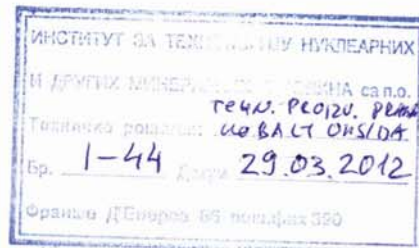 ИНСТИТУТ ЗА ТЕХНОЛОГИЈУ НУКЛЕАРНИХ
И ДРУГИХ МИНЕРАЛНИХ СИРОВИНА са п.о.
TEHN. PROIZV. PRAHA
KOBALT OKSIDA
Бр. I-44 29.03.2012
Франше Д'Епереа 86 пош.фах 390